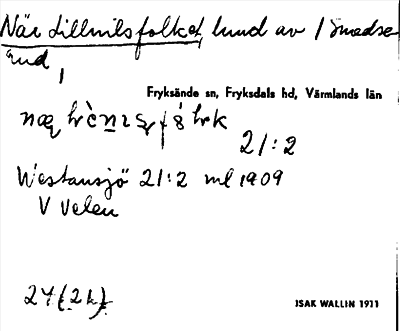 När tillnilsfolket, lund av / Smedse
rud,
Fryksände sn, Fryksdals hd, Värmlands län
21:2
Westansjö 21:2 ml 1909
V Velen
24 (2 h)
ISAK WALLIN 1911